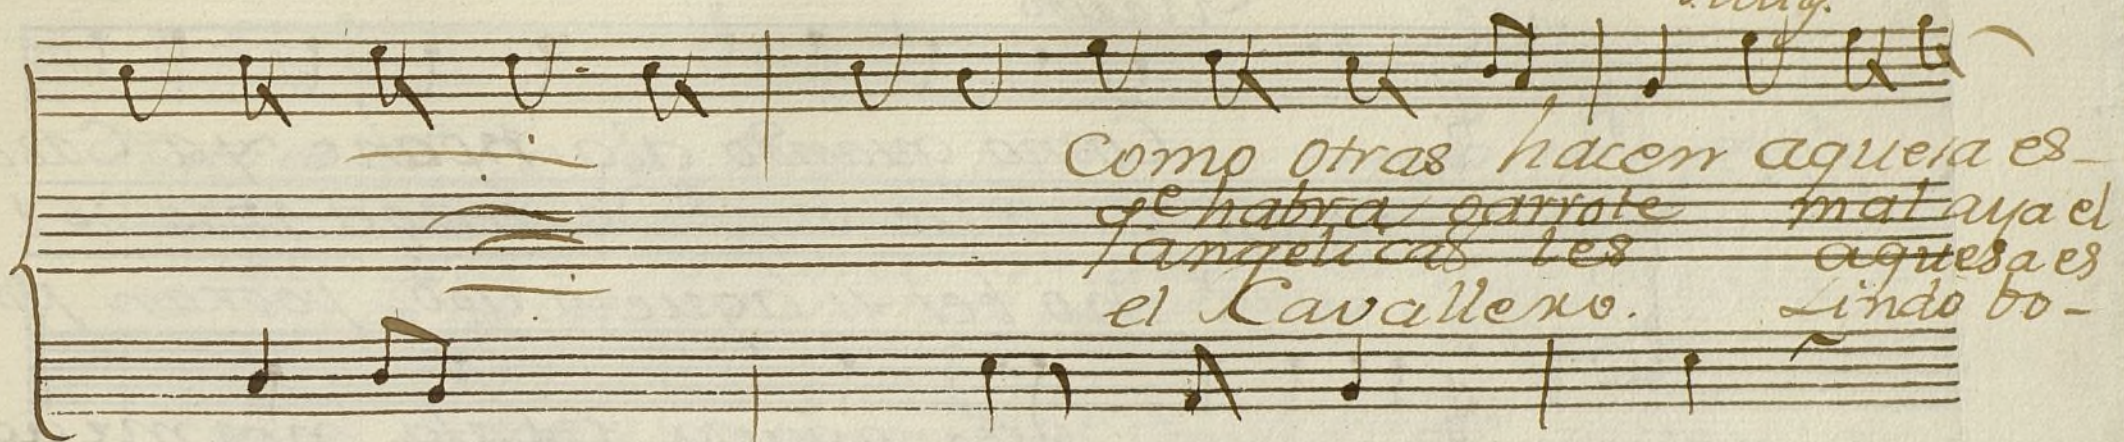 Como otras hacen aquesa es-
qe habra garrote mal aya el
angelicas les aquesa es
el Cavallero. Lindo bo-